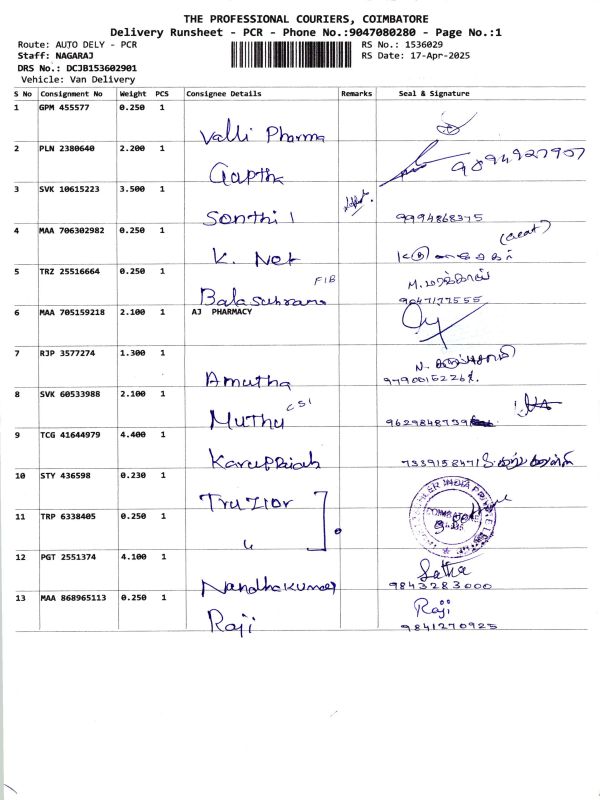 THE PROFESSIONAL COURIERS, COIMBATORE
Delivery Runsheet - PCR - Phone No.:9047080280 - Page No.:1
Route: AUTO DELY - PCR RS No.: 1536029
Staff: NAGARAJ RS Date: 17-Apr-2025
DRS No.: DCJB153602901
Vehicle: Van Delivery
S No Consignment No Weight PCS Consignee Details Remarks Seal & Signature
1 GPM 455577 0.250 1
Valli Pharma
2 PLN 2380640 2.200 1
Gaptha 9094927907
3 SVK 10615223 3.500 1
Sonthil 9994868375
4 MAA 706302982 0.250 1
K. Net
5 TRZ 25516664 0.250 1
FIB
Balasubramo 9047177555
6 MAA 705159218 2.100 1 AJ PHARMACY
7 RJP 3577274 1.300 1
Amutha
8 SVK 60533988 2.100 1
CSI
Muthu
9 TCG 41644979 4.400 1
Karuppiah 7339158471
10 STY 436598 0.230 1
Truzior
COIMBATORE
11 TRP 6338405 0.250 1
"
12 PGT 2551374 4.100 1
Satha
Nandhakumar 9843283000
13 MAA 868965113 0.250 1
Raji
Raji 9841270925